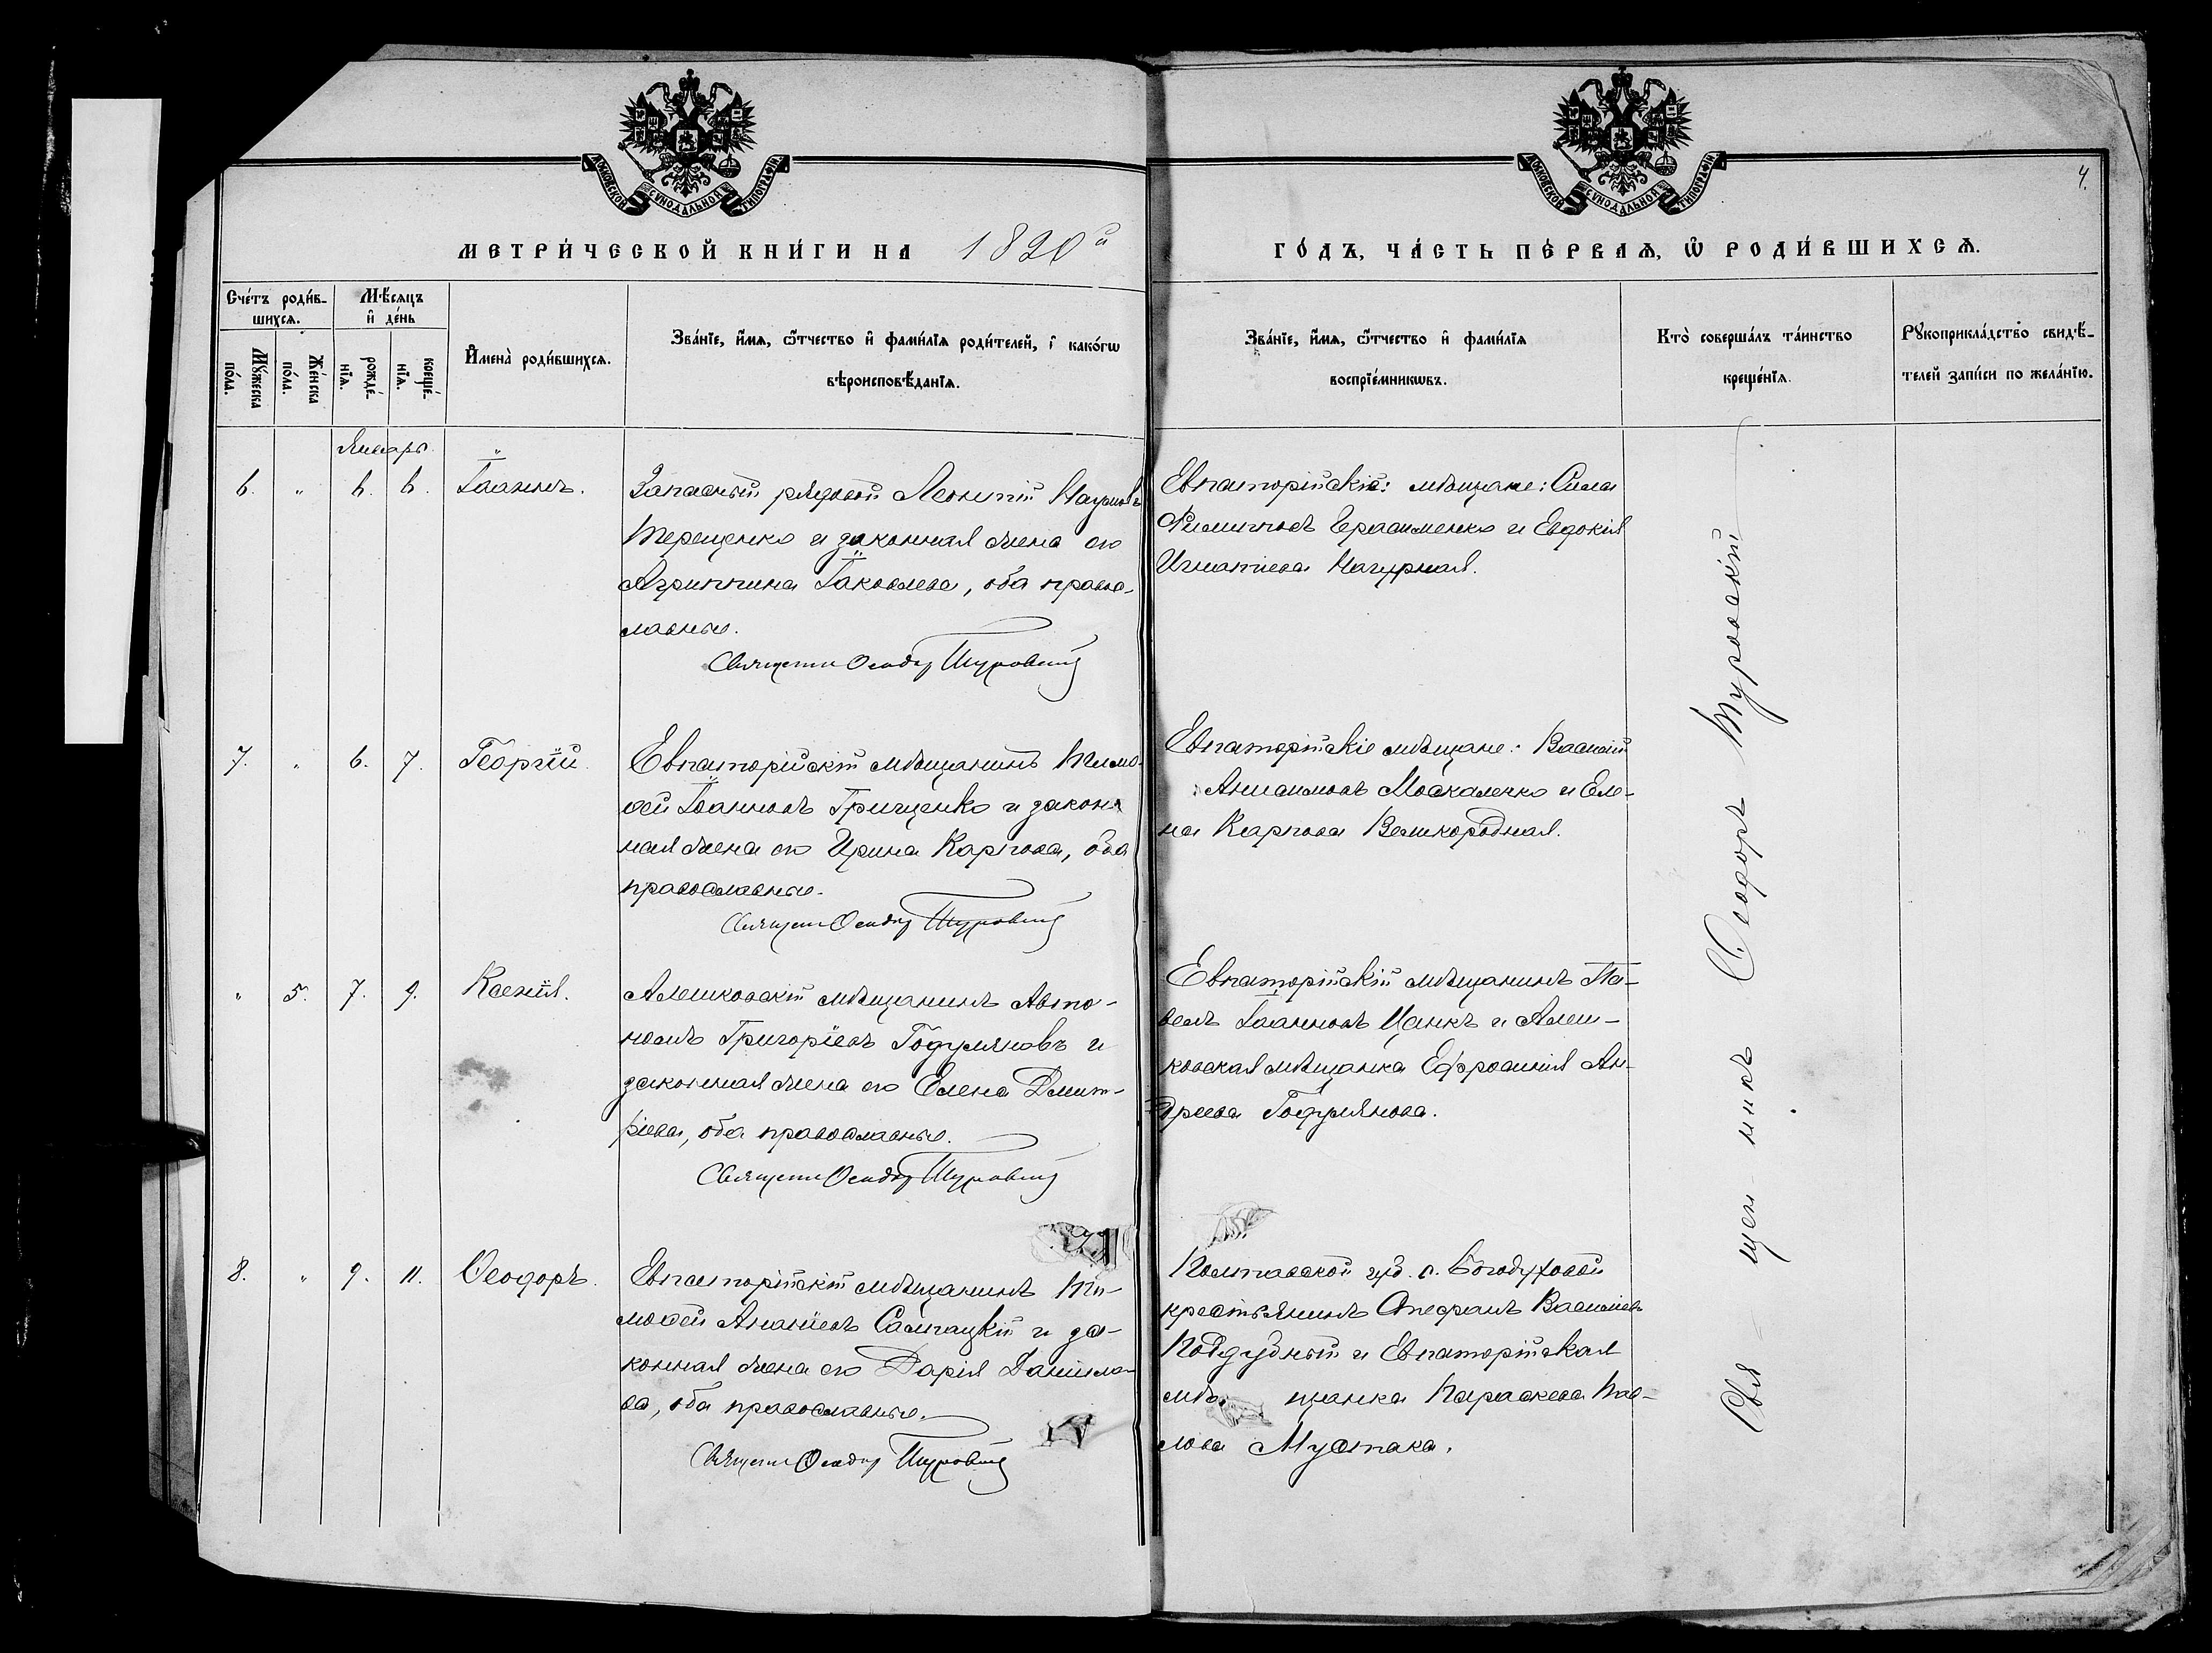 МОСКОВСКОЙ СѴНОДАЛЬНОЙ ТИПОГРАФІИ
МОСКОВСКОЙ СѴНОДАЛЬНОЙ ТИПОГРАФІИ
4.
МЕТРИ́ЧЕСКОЙ КНИ́ГИ НА 1890й
ГО́ДЪ, ЧА́СТЬ ПЕ́РВАѦ, Ѡ҆ РОДИ́ВШИХСѦ.
Сче́тъ роди́в-
шихсѧ.
Мꙋ́жеска
по́ла.
Же́нска
по́ла.
Мѣ́сѧцъ
и҆ де́нь
рожде́-
нїѧ.
креще́-
нїѧ.
И҆мена̀ роди́вшихсѧ.
Зва́нїе, и҆́мѧ, ѻ҆́тчество и҆ фами́лїѧ роди́телей, и҆ како́гѡ
вѣроисповѣ́данїѧ.
Зва́нїе, и҆́мѧ, ѻ҆́тчество и҆ фами́лїѧ
воспрїе́мникѡвъ.
Кто̀ соверша́лъ та́инство
креще́нїѧ.
Рꙋкоприкла́дство свидѣ́-
телей за́писи по жела́нїю.
Январь
6. " 6. 6. Іоаннъ.
Запасный рядовой Леонтій Наумовъ
Терещенко и законная жена его
Агриппина Іаковлева, оба право-
славные.
Священн Ѳеодор Туровскій
Евпаторійскіе: мѣщане: Сила
Филипповъ Герасименко и Евдокія
Игнатіева Нагурная.
7. " 6. 7. Георгій
Евпаторійскій мѣщанинъ Тимо-
ѳей Іоанновъ Грищенко и закон-
ная жена его Ирина Карпова, оба
православные.
Священн Ѳеодор Туровскій
Евпаторійскіе мѣщане: Василій
Анисимовъ Москаленко и Еле-
на Карпова Великородная.
" 5. 7. 9. Ксенія.
Алешковскій мѣщанинъ Авто-
номъ Григоріевъ Годуляновъ и
законная жена его Елена Димит-
ріева, оба православные.
Священн Ѳеодор Туровскій
Евпаторійскій мѣщанинъ Па-
велъ Іоанновъ Цанкъ и Алеш-
ковская мѣщанка Ефросинія Ан-
дреева Годулянова.
8. " 9. 11. Ѳеодоръ.
Евпаторійскій мѣщанинъ Ти-
моѳей Ананіевъ Сампацкій и за-
конная жена его Дарія Данiило-
ва, оба православные.
Священн Ѳеодор Туровскій
Полтавской губ. с. Богодуховой
крестьянинъ Стефанъ Васильевъ
Поддубный и Евпаторійская
мѣщанка Параскева Пав-
лова Мустака.
Свя-щен-никъ Ѳеодоръ Туровскій